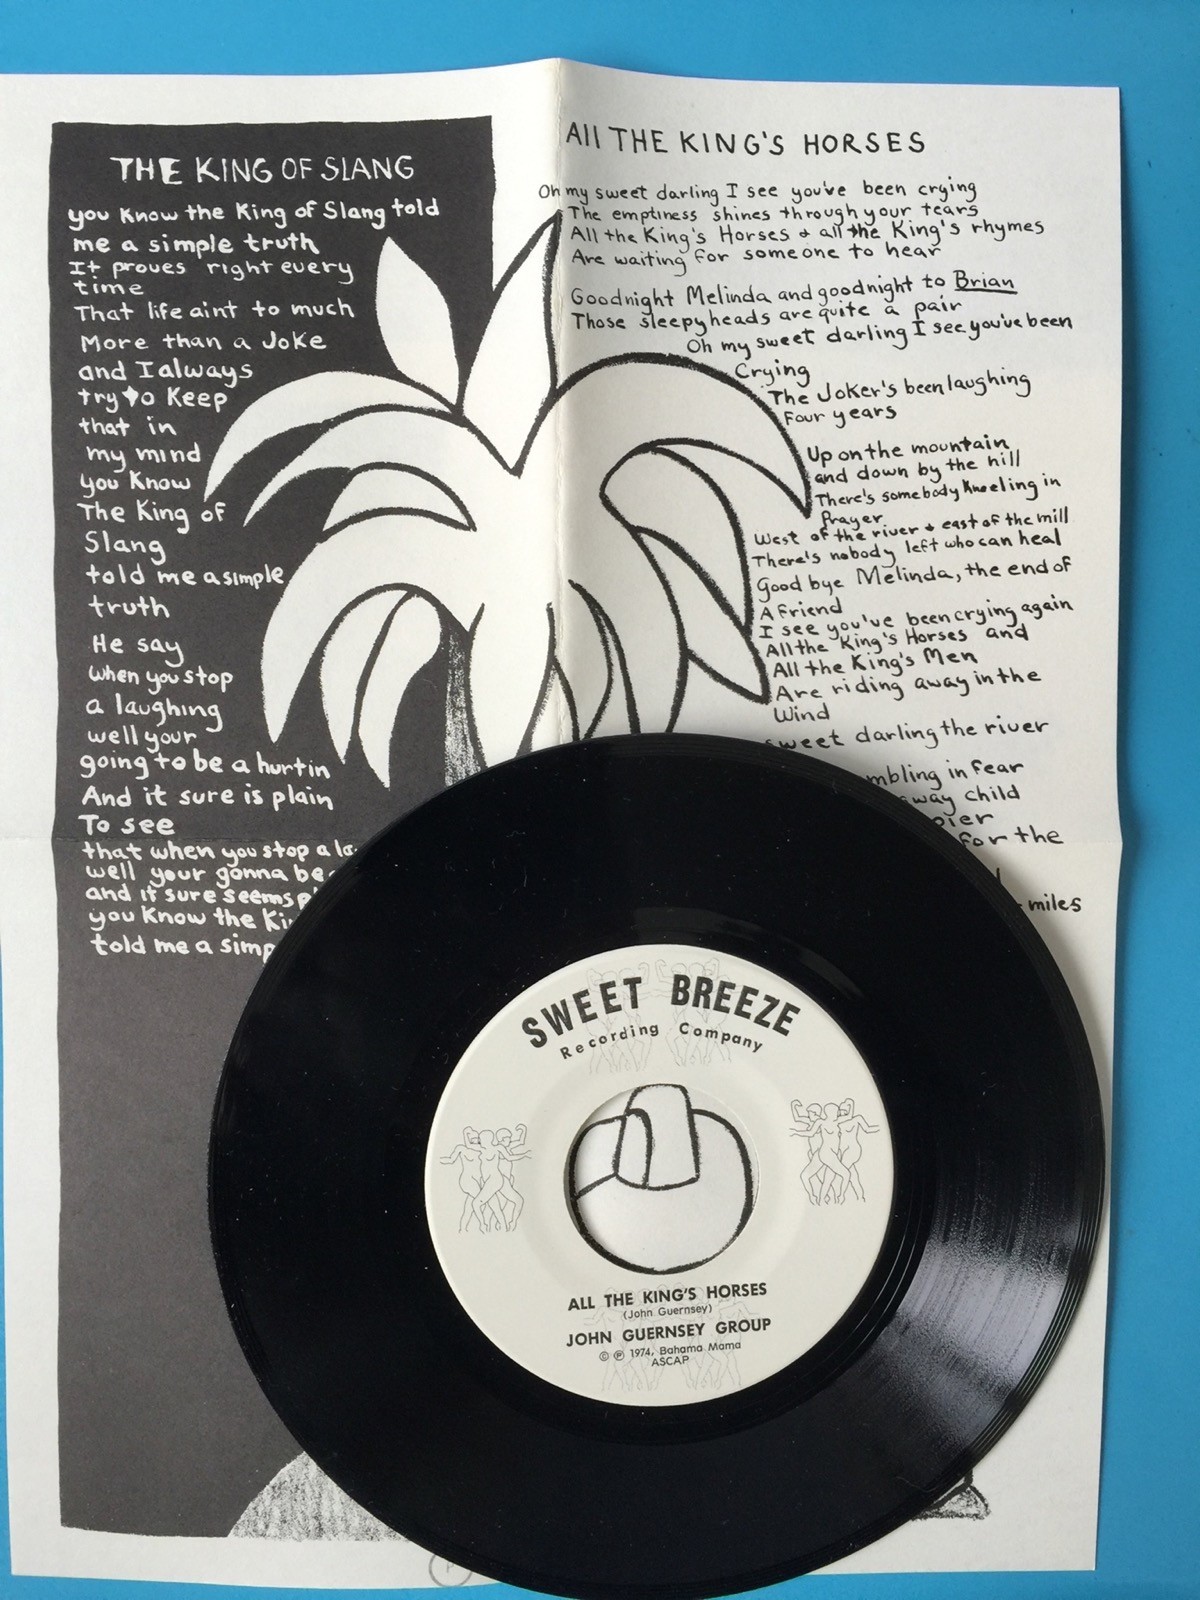 THE KING OF SLANG
you know the King of Slang told
me a simple truth
It proves right every
time
That life aint to much
More than a Joke
and I always
try to Keep
that in
my mind
you Know
The King of
Slang
told me a simple
truth
He say
when you stop
a laughing
well your
going to be a hurtin
And it sure is plain
To see
that when you stop a
well your gonna be
and it sure seems
you Know the
told me a
All THE KING'S HORSES
Oh my sweet darling I see you've been crying
The emptiness shines through your tears
All the King's Horses + all the King's rhymes
Are waiting for someone to hear
Goodnight Melinda and goodnight to Brian
Those sleepyheads are quite a pair
Oh my sweet darling I see you've been
Crying
The Joker's been laughing
Four years
Up on the mountain
and down by the hill
There's somebody kneeling in
Prayer
West of the river + east of the mill
There's nobody left who can heal
Good bye Melinda, the end of
A friend
I see you've been crying again
All the King's Horses and
All the King's Men
Are riding away in the
Wind
sweet darling the river
in fear
child
for the
miles
SWEET BREEZE
Recording Company
ALL THE KING'S HORSES
(John Guernsey)
JOHN GUERNSEY GROUP
© ℗ 1974, Bahama Mama
ASCAP